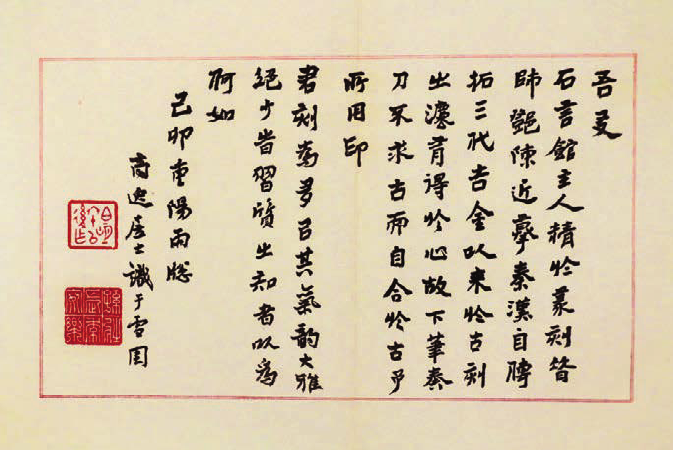 吾友
石言館主人精於篆刻昔
師鄧陳近摹秦漢自
拓三代吉金以來於古刻
之有得於心故下筆奏
刀不求古而自合於古予
所用印
君刻為多以其氣韵大雅
絕少時習質之知者以為
何如
己卯重陽雨牕
商逸居士識于雪園